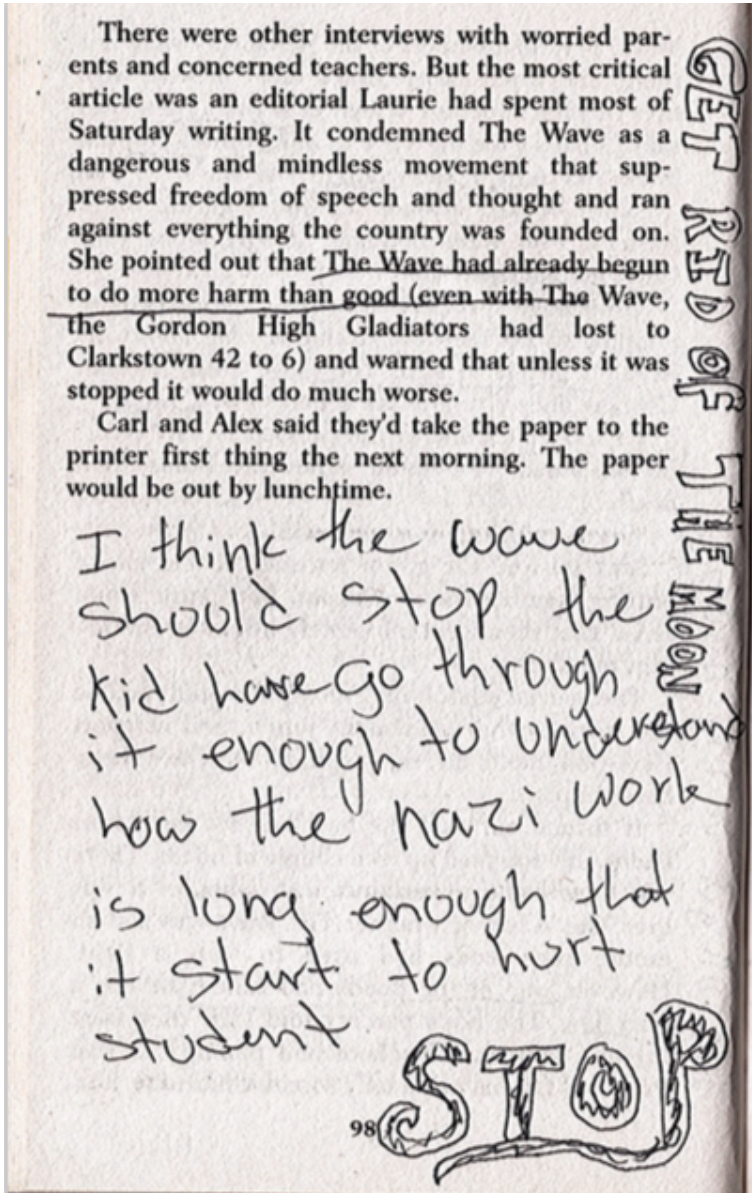 There were other interviews with worried par-
ents and concerned teachers. But the most critical
article was an editorial Laurie had spent most of
Saturday writing. It condemned The Wave as a
dangerous and mindless movement that sup-
pressed freedom of speech and thought and ran
against everything the country was founded on.
She pointed out that The Wave had already begun
to do more harm than good (even with The Wave,
the Gordon High Gladiators had lost to
Clarkstown 42 to 6) and warned that unless it was
stopped it would do much worse.
Carl and Alex said they'd take the paper to the
printer first thing the next morning. The paper
would be out by lunchtime.
I think the wave
should stop the
kid have go through
it enough to understand
how the nazi work
is long enough that
it start to hurt
student
98
STOP
GET RID OF THE MOON